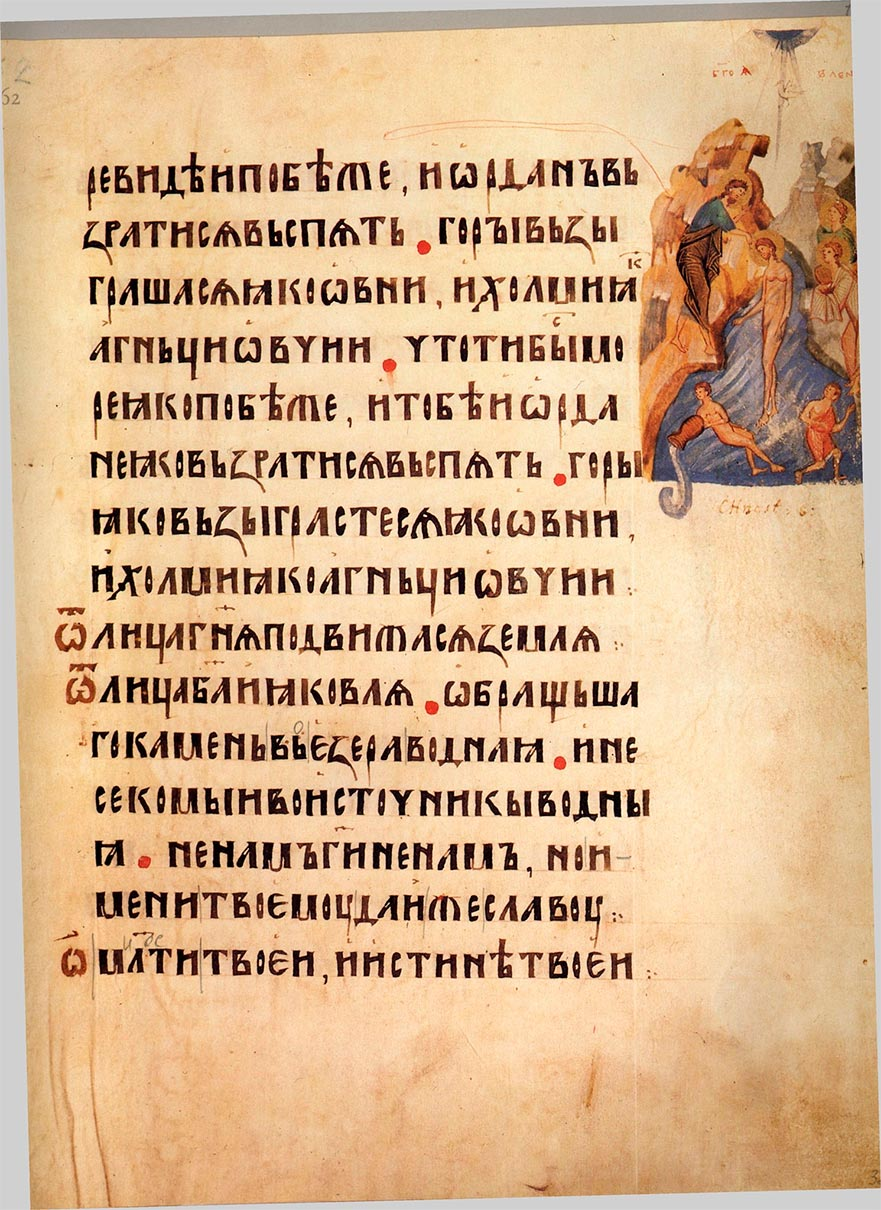 б҃гоꙗ влен
52
ревидѣипобѣже, иѡрданъвь
ꙁратисѧвьспѧть • горъївьꙁы
грашасѧꙗкоѡвни, ихолминꙗ к
агньциѡвчии • чтотибы̑с̑мо
реꙗкопобѣже, итобѣиѡрда
неꙗковьꙁратисѧвьспѧть • горы
ꙗковьꙁыграстесѧꙗкоѡвни,
ихолминꙗкоагньциѡвчии :
Ѿлицаг҃нѧподвижасѧꙁемлѧ :
Ѿлицаб҃аиꙗковлѧ • ѡбращьша
гокаменьвьѥꙁераводнаꙗ • ине
секомыивоисточникыводны
ꙗ • ненамъг҃иненамъ, нои
менитвоѥмоудажеславоу :
ѡмл҃титвоѥи, иистинѣтвоѥи :